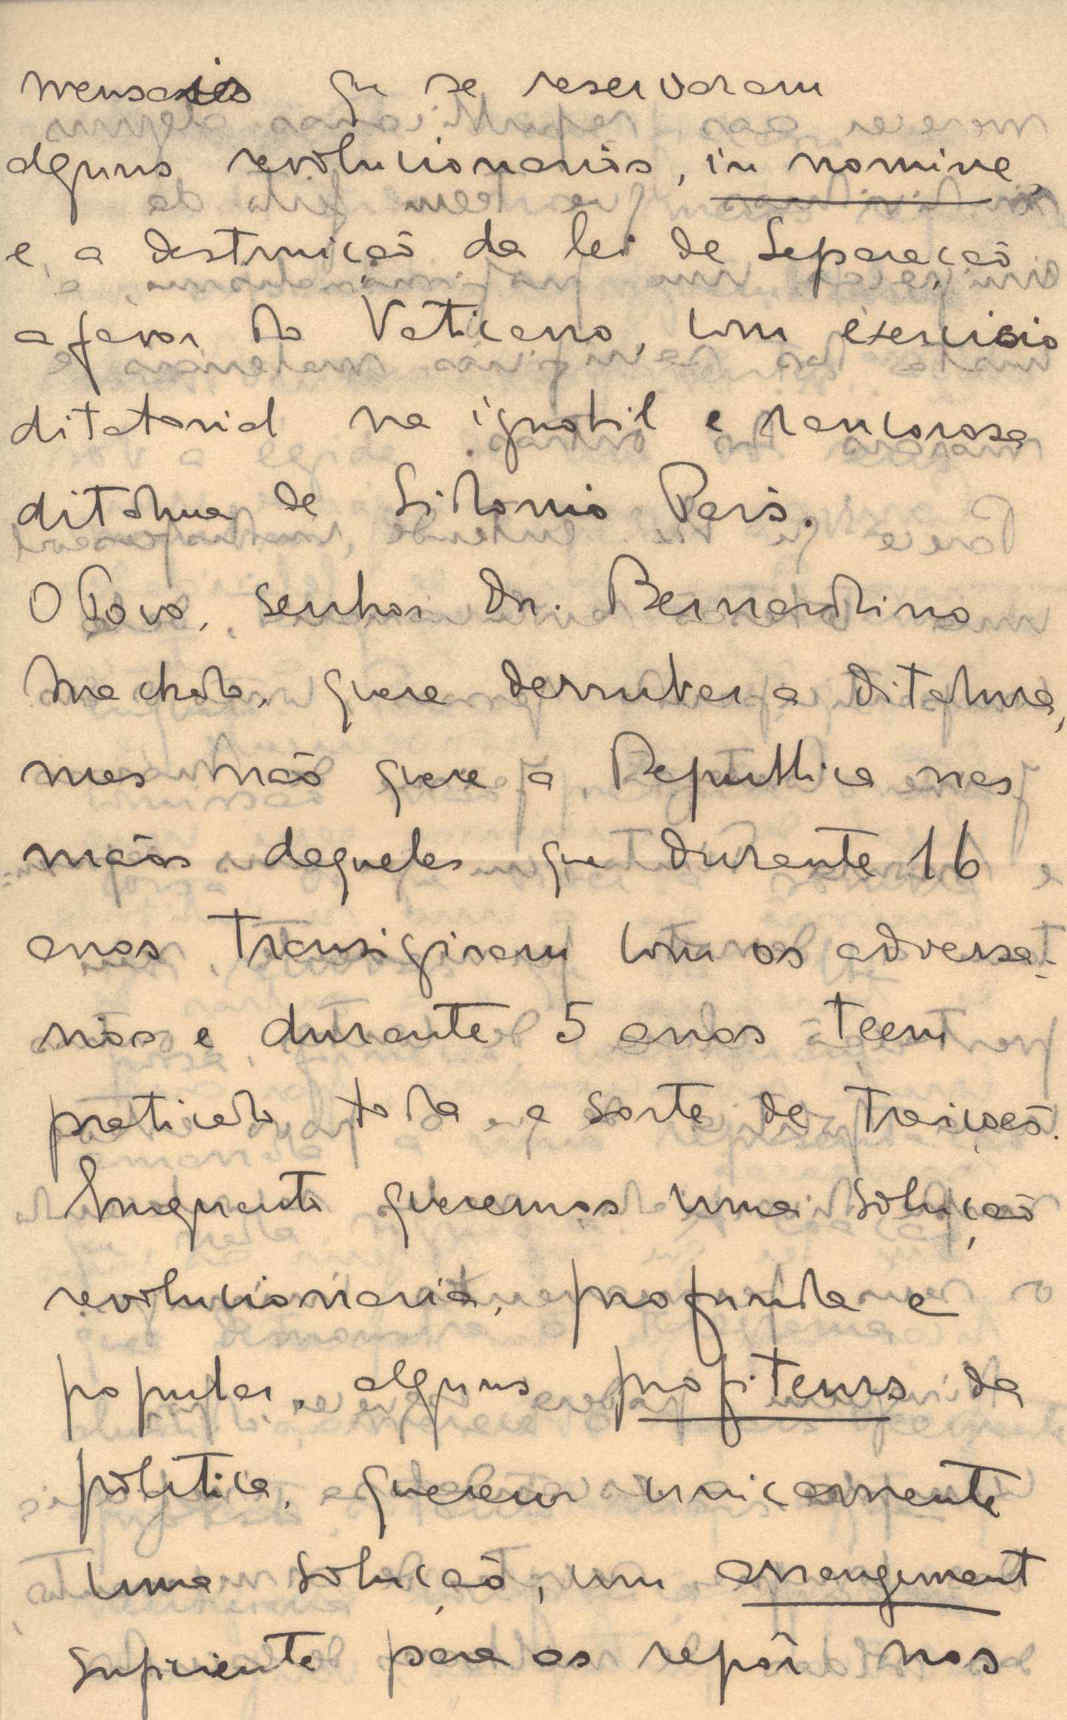 mensaes que se reservaram
alguns revolucionarios, in nomine,
e, a destruição da lei de Separação
a favor do Vaticano, com exercicio
ditatorial na ignobil e rancorosa
ditadura de Sidonio Pais.
O Povo, senhor Dr. Bernardino
Machado, quere derrubar a ditadura,
mas não quere a Republica nas
mãos daqueles que durante 16
anos transigiram com os adversa-
rios e durante 5 anos teem
praticado toda a sorte de traições.
Enquanto queremos uma solução
revolucionaria, profunda e
popular, alguns profiteurs da
politica, querem unicamente
uma solução, um arrangement
suficiente para os repôr nos